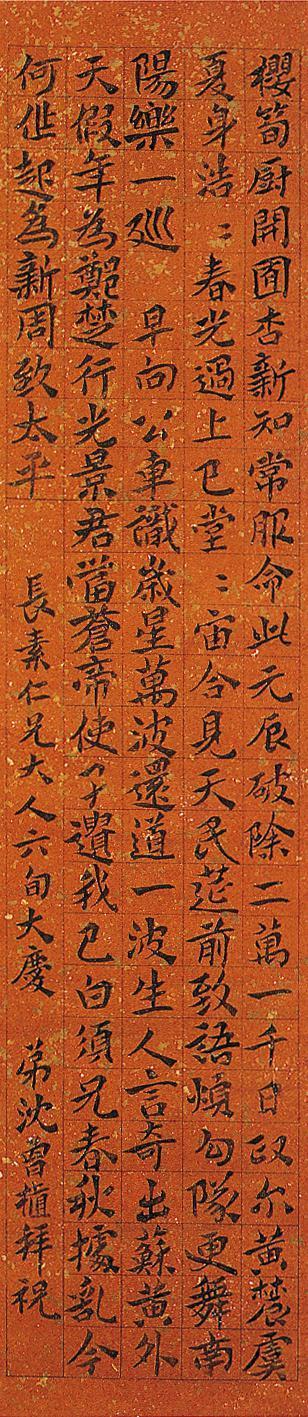 櫻筍厨開囿杏新知常服命此元辰破除二萬一千日政尔黃農虞
夏身浩〻春光過上巳堂〻宙合見天民莚前致語煩勾隊更舞南
陽樂一巡　早向公車識歲星萬波還道一波生人言奇出蘇黃外
天假年為鄭楚行光景君當蒼帝使孑遺我已白須兄春秋據亂今
何世起為新周致太平
長素仁兄大人六旬大慶　弟沈曾植拜祝